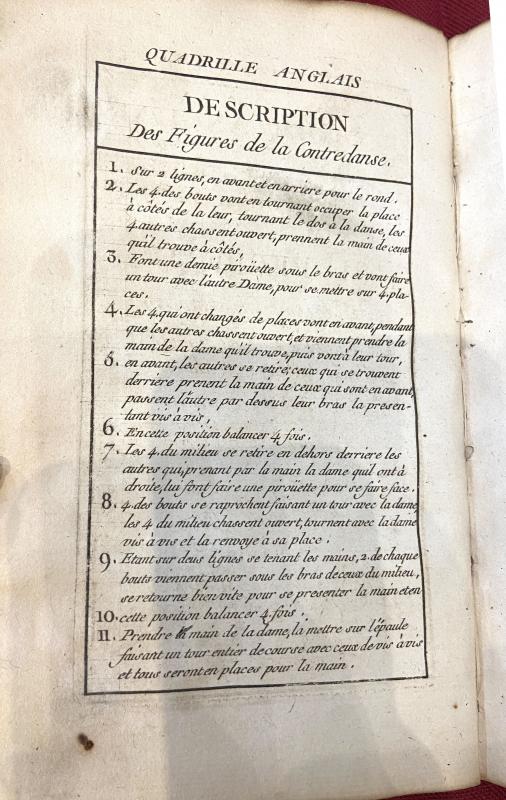 QUADRILLE ANGLAIS
DESCRIPTION
Des Figures de la Contredanse.
1. Sur 2 lignes, en avant et en arriere pour le rond.
2. Les 4. des bouts vont en tournant occuper la place
à côtés de la leur, tournant le dos à la danse, les
4. autres chassent ouvert, prennent la main de ceux
qu'il trouve à côtés,
3. Font une demie piroüette sous le bras et vont faire
un tour avec l'autre Dame, pour se mettre sur 4. pla-
ces.
4. Les 4. qui ont changés de places vont en avant, pendant
que les autres chassent ouvert, et viennent prendre la
main de la dame qu'il trouve, puis vont à leur tour,
5. en avant, les autres se retire; ceux qui se trouvent
derriere prenent la main de ceux qui sont en avant,
passent l'autre par dessus leur bras la presen-
tant vis à vis,
6. En cette position balancer 4 fois.
7. Les 4. du milieu se retire en dehors derriere les
autres qui, prenant par la main la dame quil ont à
droite, lui font faire une piroüette pour se faire face.
8. 4. des bouts se raprochent faisant un tour avec la dame
les 4 du milieu chassent ouvert, tournent avec la dame
vis à vis et la renvoye à sa place.
9. Etant sur deus lignes se tenant les mains, 2. de chaque
bouts viennent passer sous les bras de ceux du milieu,
se retourne bien vite pour se presenter la main et en
10. cette position balancer 4 fois.
11. Prendre la main de la dame, la mettre sur l'épaule
faisant un tour entier de course avec ceux de vis à vis
et tous seront en places pour la main.